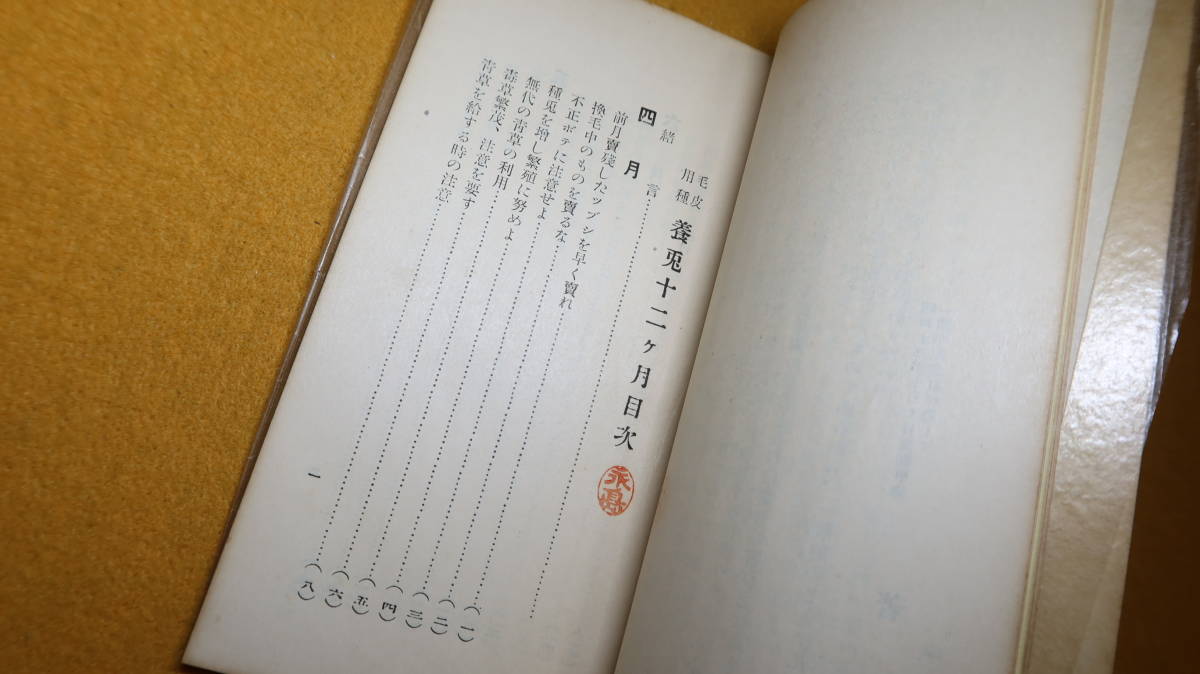 毛皮
用種
養兎十二ヶ月目次
緒言
四月
前月賣殘したツブシを早く賣れ……(一)
換毛中のものを賣るな……(二)
不正ボテに注意せよ……(三)
種兎を增し繁殖に努めよ……(四)
無代の靑草の利用……(五)
毒草繁茂、注意を要す……(六)
靑草を給する時の注意……(八)
一